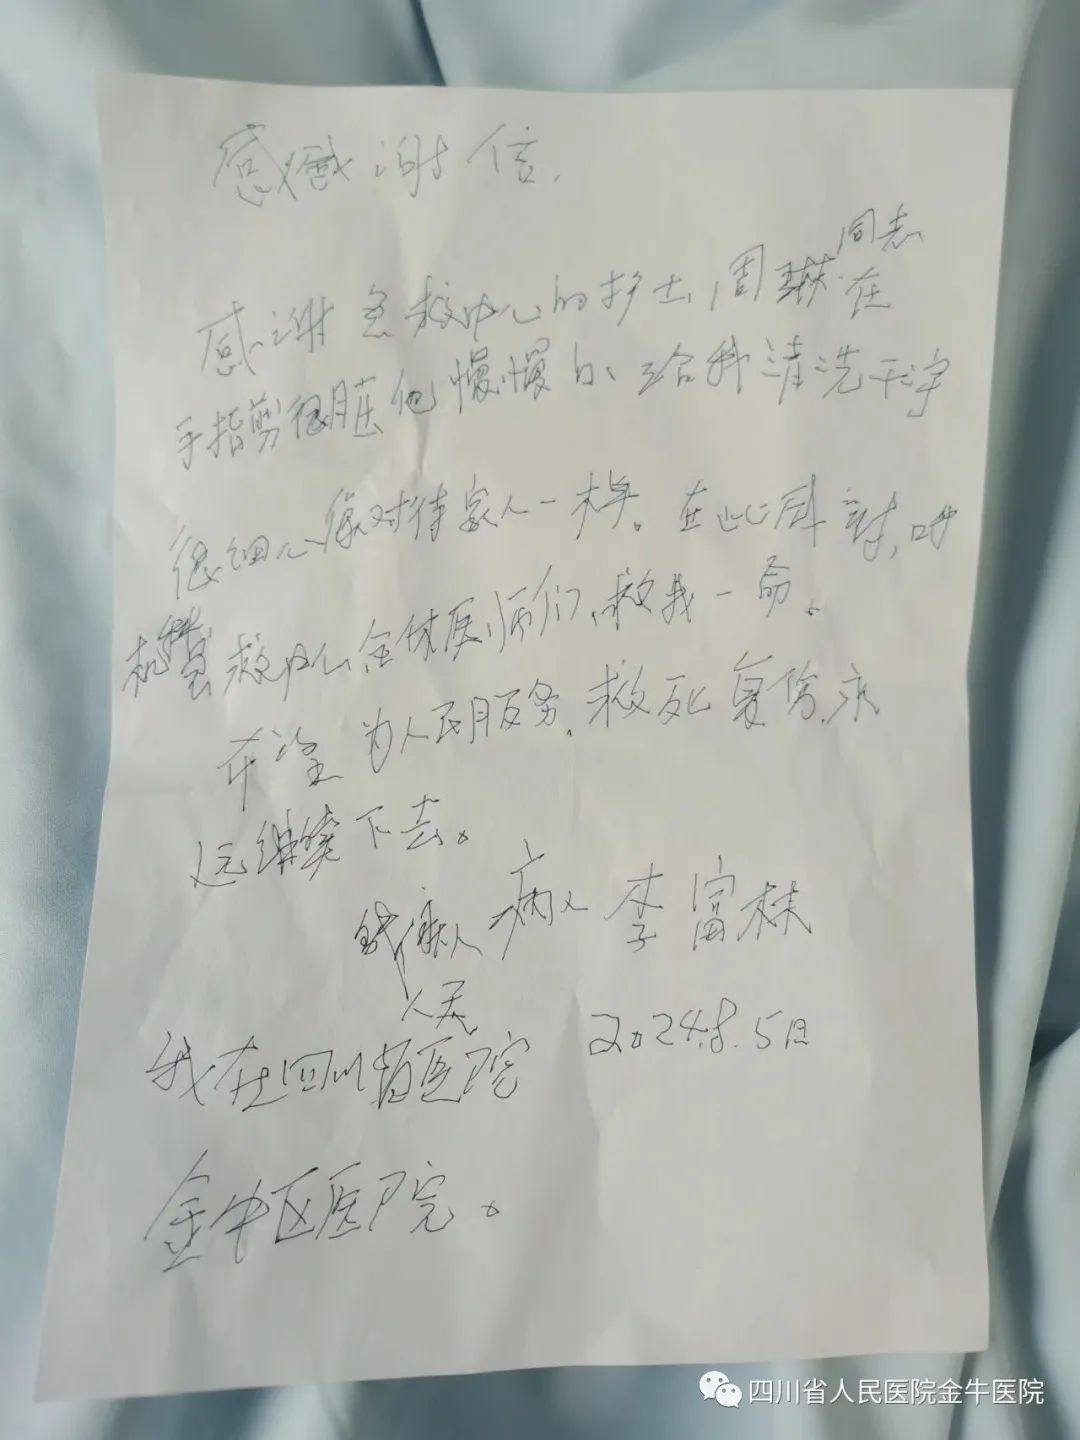 感谢信.
感谢急救中心的护士,周琳同志在
手指剪很脏他慢慢的给我清洗干净
很细心像对待家人一样。在此同时,呼
救中心全体医师们,救我一命。
希望为人民服务,救死复伤,永
远继续下去。
病人 李富林
2024.8.5日
我在四川省人民医院
金牛区医院。
四川省人民医院金牛医院